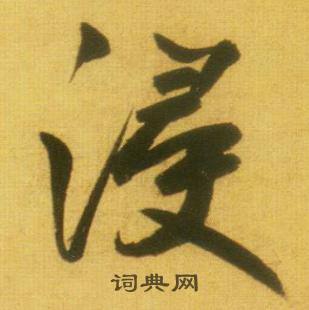 浸
词典网